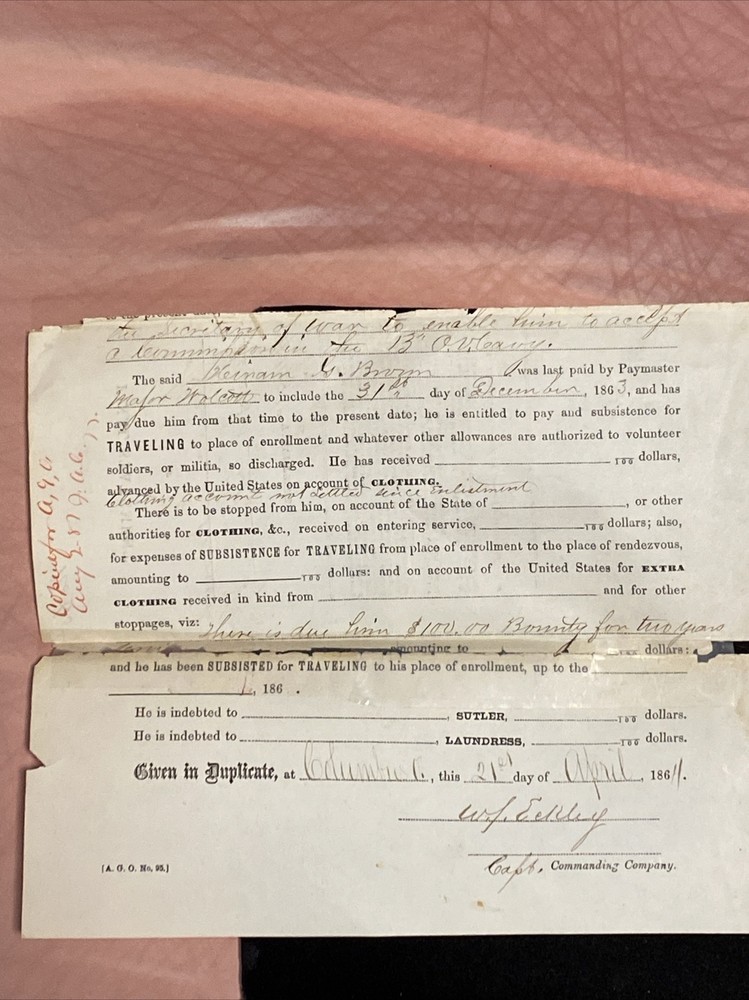 to the present date
the Secretary of War to enable him to accept
a Commission in the 13th O.V. Cavy.
The said G. Brown was last paid by Paymaster
Major Wolcott to include the 31st day of December, 1863, and has
pay due him from that time to the present date; he is entitled to pay and subsistence for
TRAVELING to place of enrollment and whatever other allowances are authorized to volunteer
soldiers, or militia, so discharged. He has received 100 dollars,
advanced by the United States on account of CLOTHING.
Clothing account not settled since enlistment
There is to be stopped from him, on account of the State of , or other
authorities for CLOTHING, &c., received on entering service, 100 dollars; also,
for expenses of SUBSISTENCE for TRAVELING from place of enrollment to the place of rendezvous,
amounting to 100 dollars: and on account of the United States for EXTRA
CLOTHING received in kind from and for other
stoppages, viz: There is due him $100.00 Bounty for two years
amounting to 100 dollars:
and he has been SUBSISTED for TRAVELING to his place of enrollment, up to the
, 186 .
He is indebted to , SUTLER, 100 dollars.
He is indebted to , LAUNDRESS, 100 dollars.
Given in Duplicate, at Columbus O., this 21st day of April, 1864.
W. J. Eckley
Capt. Commanding Company.
[A. G. O. No. 95.]
Copied for A.G.O.
Aug 28